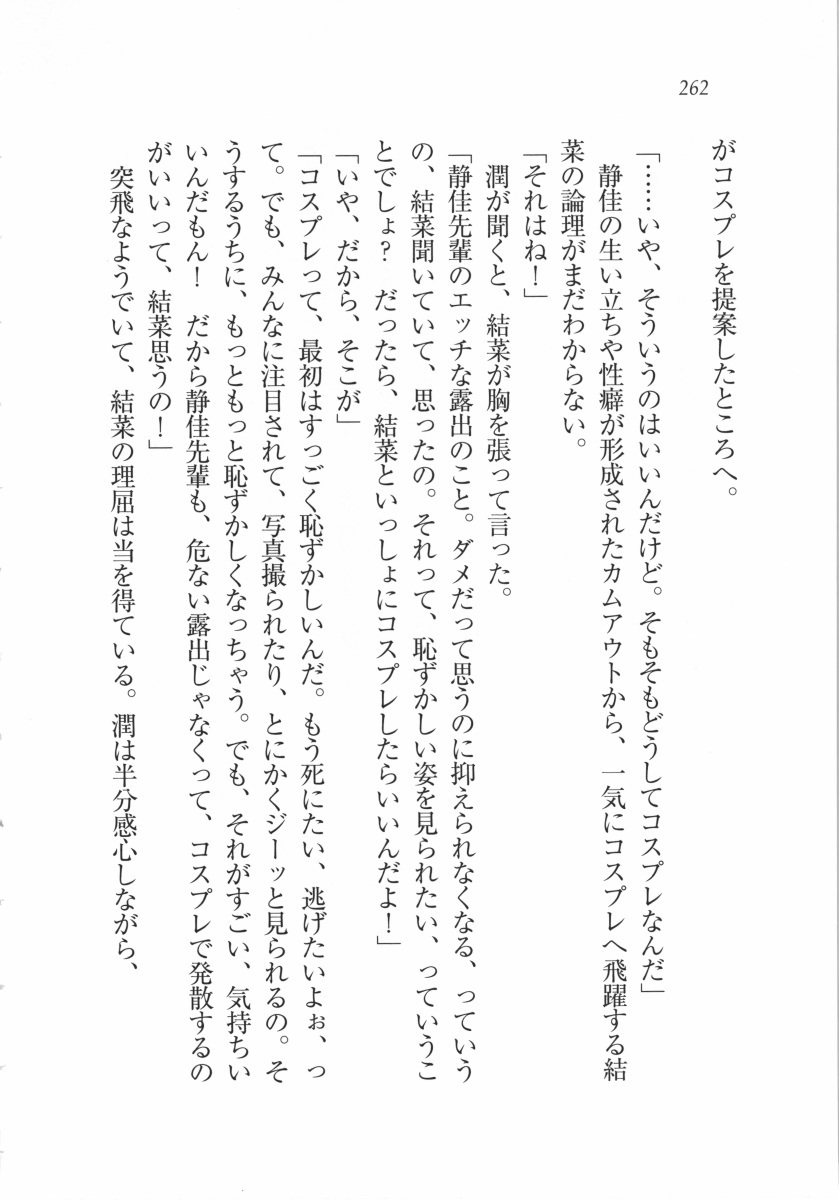 262
がコスプレを提案したところへ。
「……いや、そういうのはいいんだけど。そもそもどうしてコスプレなんだ」
静佳の生い立ちや性癖が形成されたカムアウトから、一気にコスプレへ飛躍する結
菜の論理がまだわからない。
「それはね！」
潤が聞くと、結菜が胸を張って言った。
「静佳先輩のエッチな露出のこと。ダメだって思うのに抑えられなくなる、っていう
の、結菜聞いていて、思ったの。それって、恥ずかしい姿を見られたい、っていうこ
とでしょ？　だったら、結菜といっしょにコスプレしたらいいんだよ！」
「いや、だから、そこが」
「コスプレって、最初はすっごく恥ずかしいんだ。もう死にたい、逃げたいよぉ、っ
て。でも、みんなに注目されて、写真撮られたり、とにかくジーッと見られるの。そ
うするうちに、もっともっと恥ずかしくなっちゃう。でも、それがすごい、気持ちい
いんだもん！　だから静佳先輩も、危ない露出じゃなくって、コスプレで発散するの
がいいって、結菜思うの！」
突飛なようでいて、結菜の理屈は当を得ている。潤は半分感心しながら、